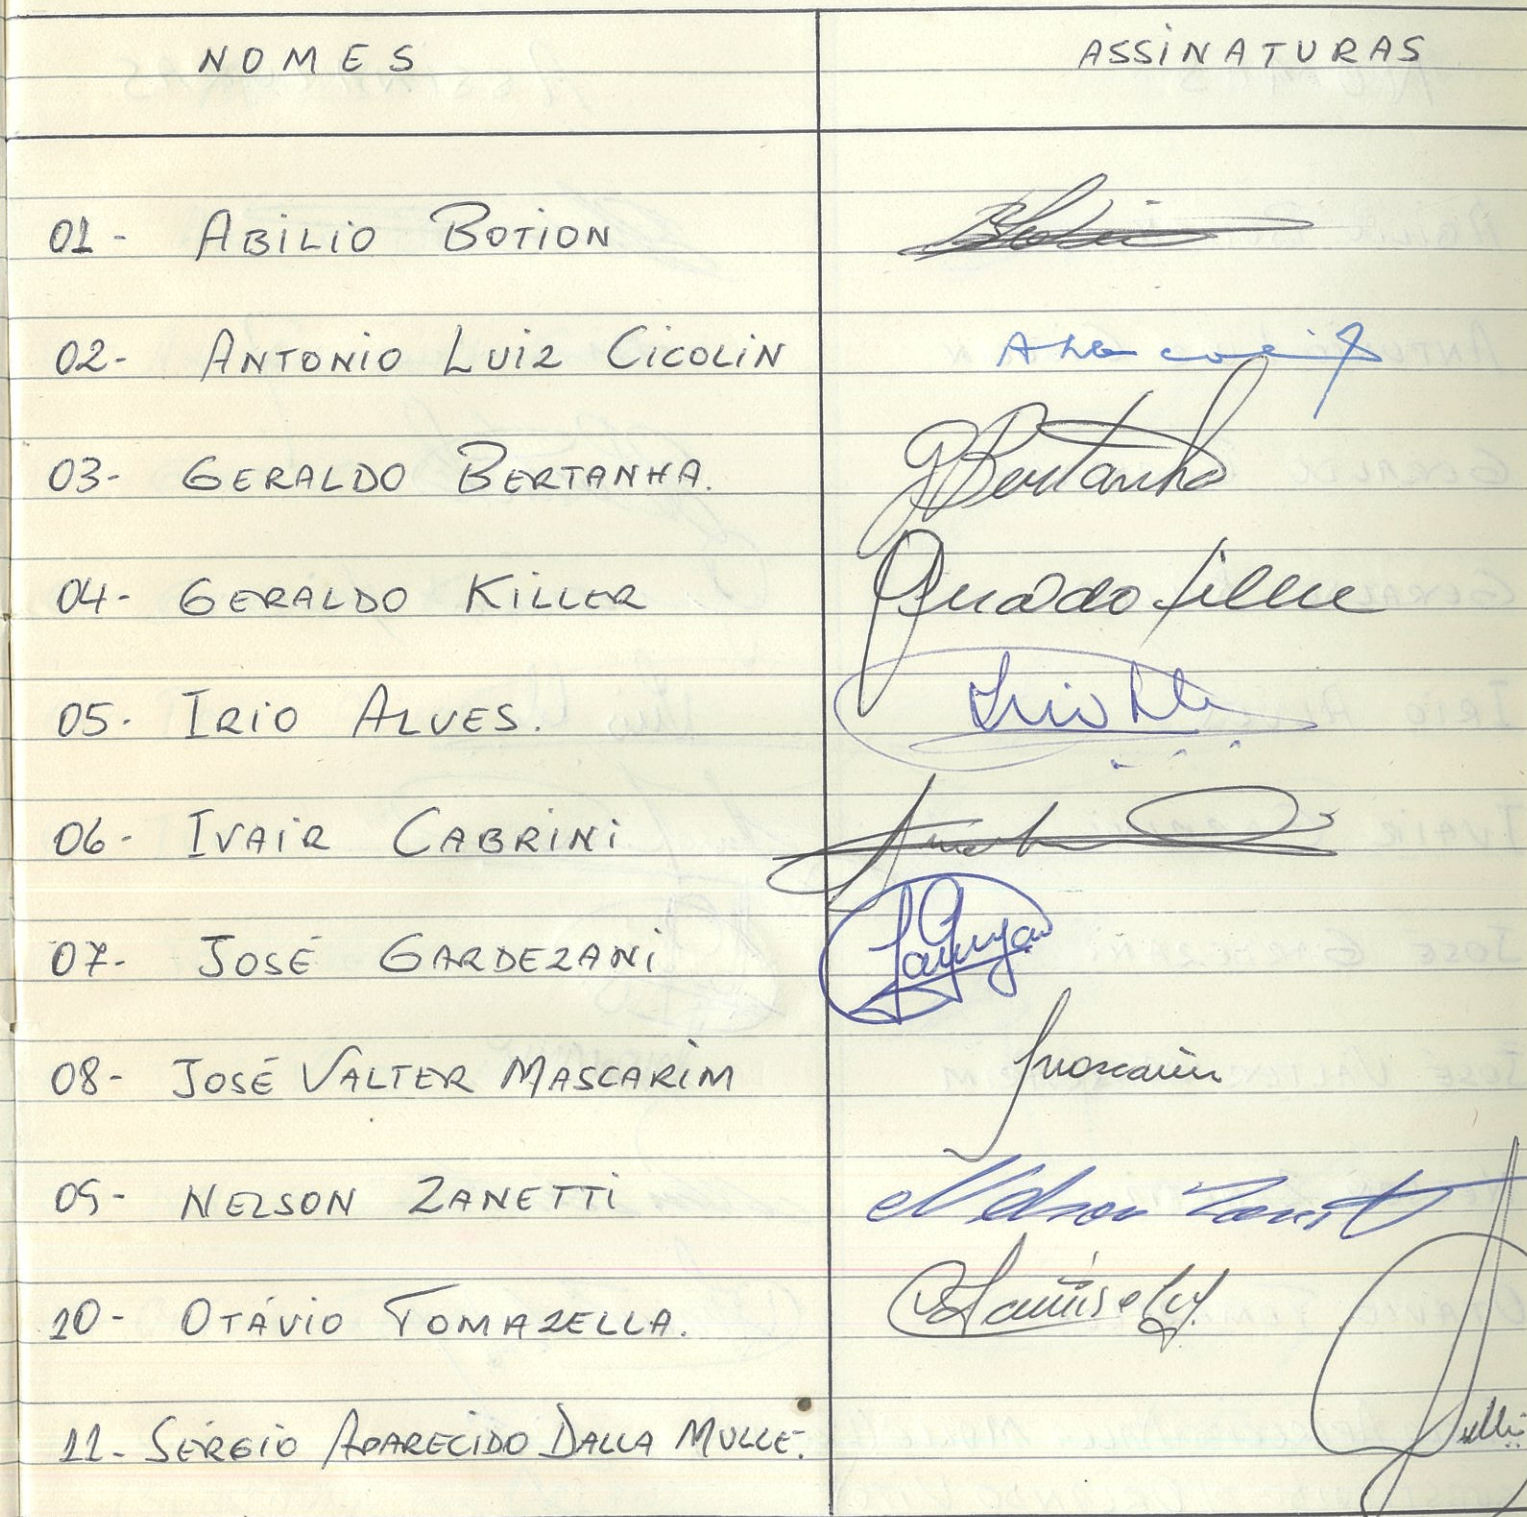 NOMES ASSINATURAS
01- ABILIO BOTION
02- ANTONIO LUIZ CICOLIN
03- GERALDO BERTANHA. GBertanha
04- GERALDO KILLER Geraldo Killer
05- IRIO ALVES. Irio
06- IVAIR CABRINI
07- JOSÉ GARDEZANI
08- JOSÉ VALTER MASCARIM Mascarin
09- NELSON ZANETTI Nelson Zanetti
10- OTÁVIO TOMAZELLA.
11- SÉRGIO APARECIDO DALLA MULLE.